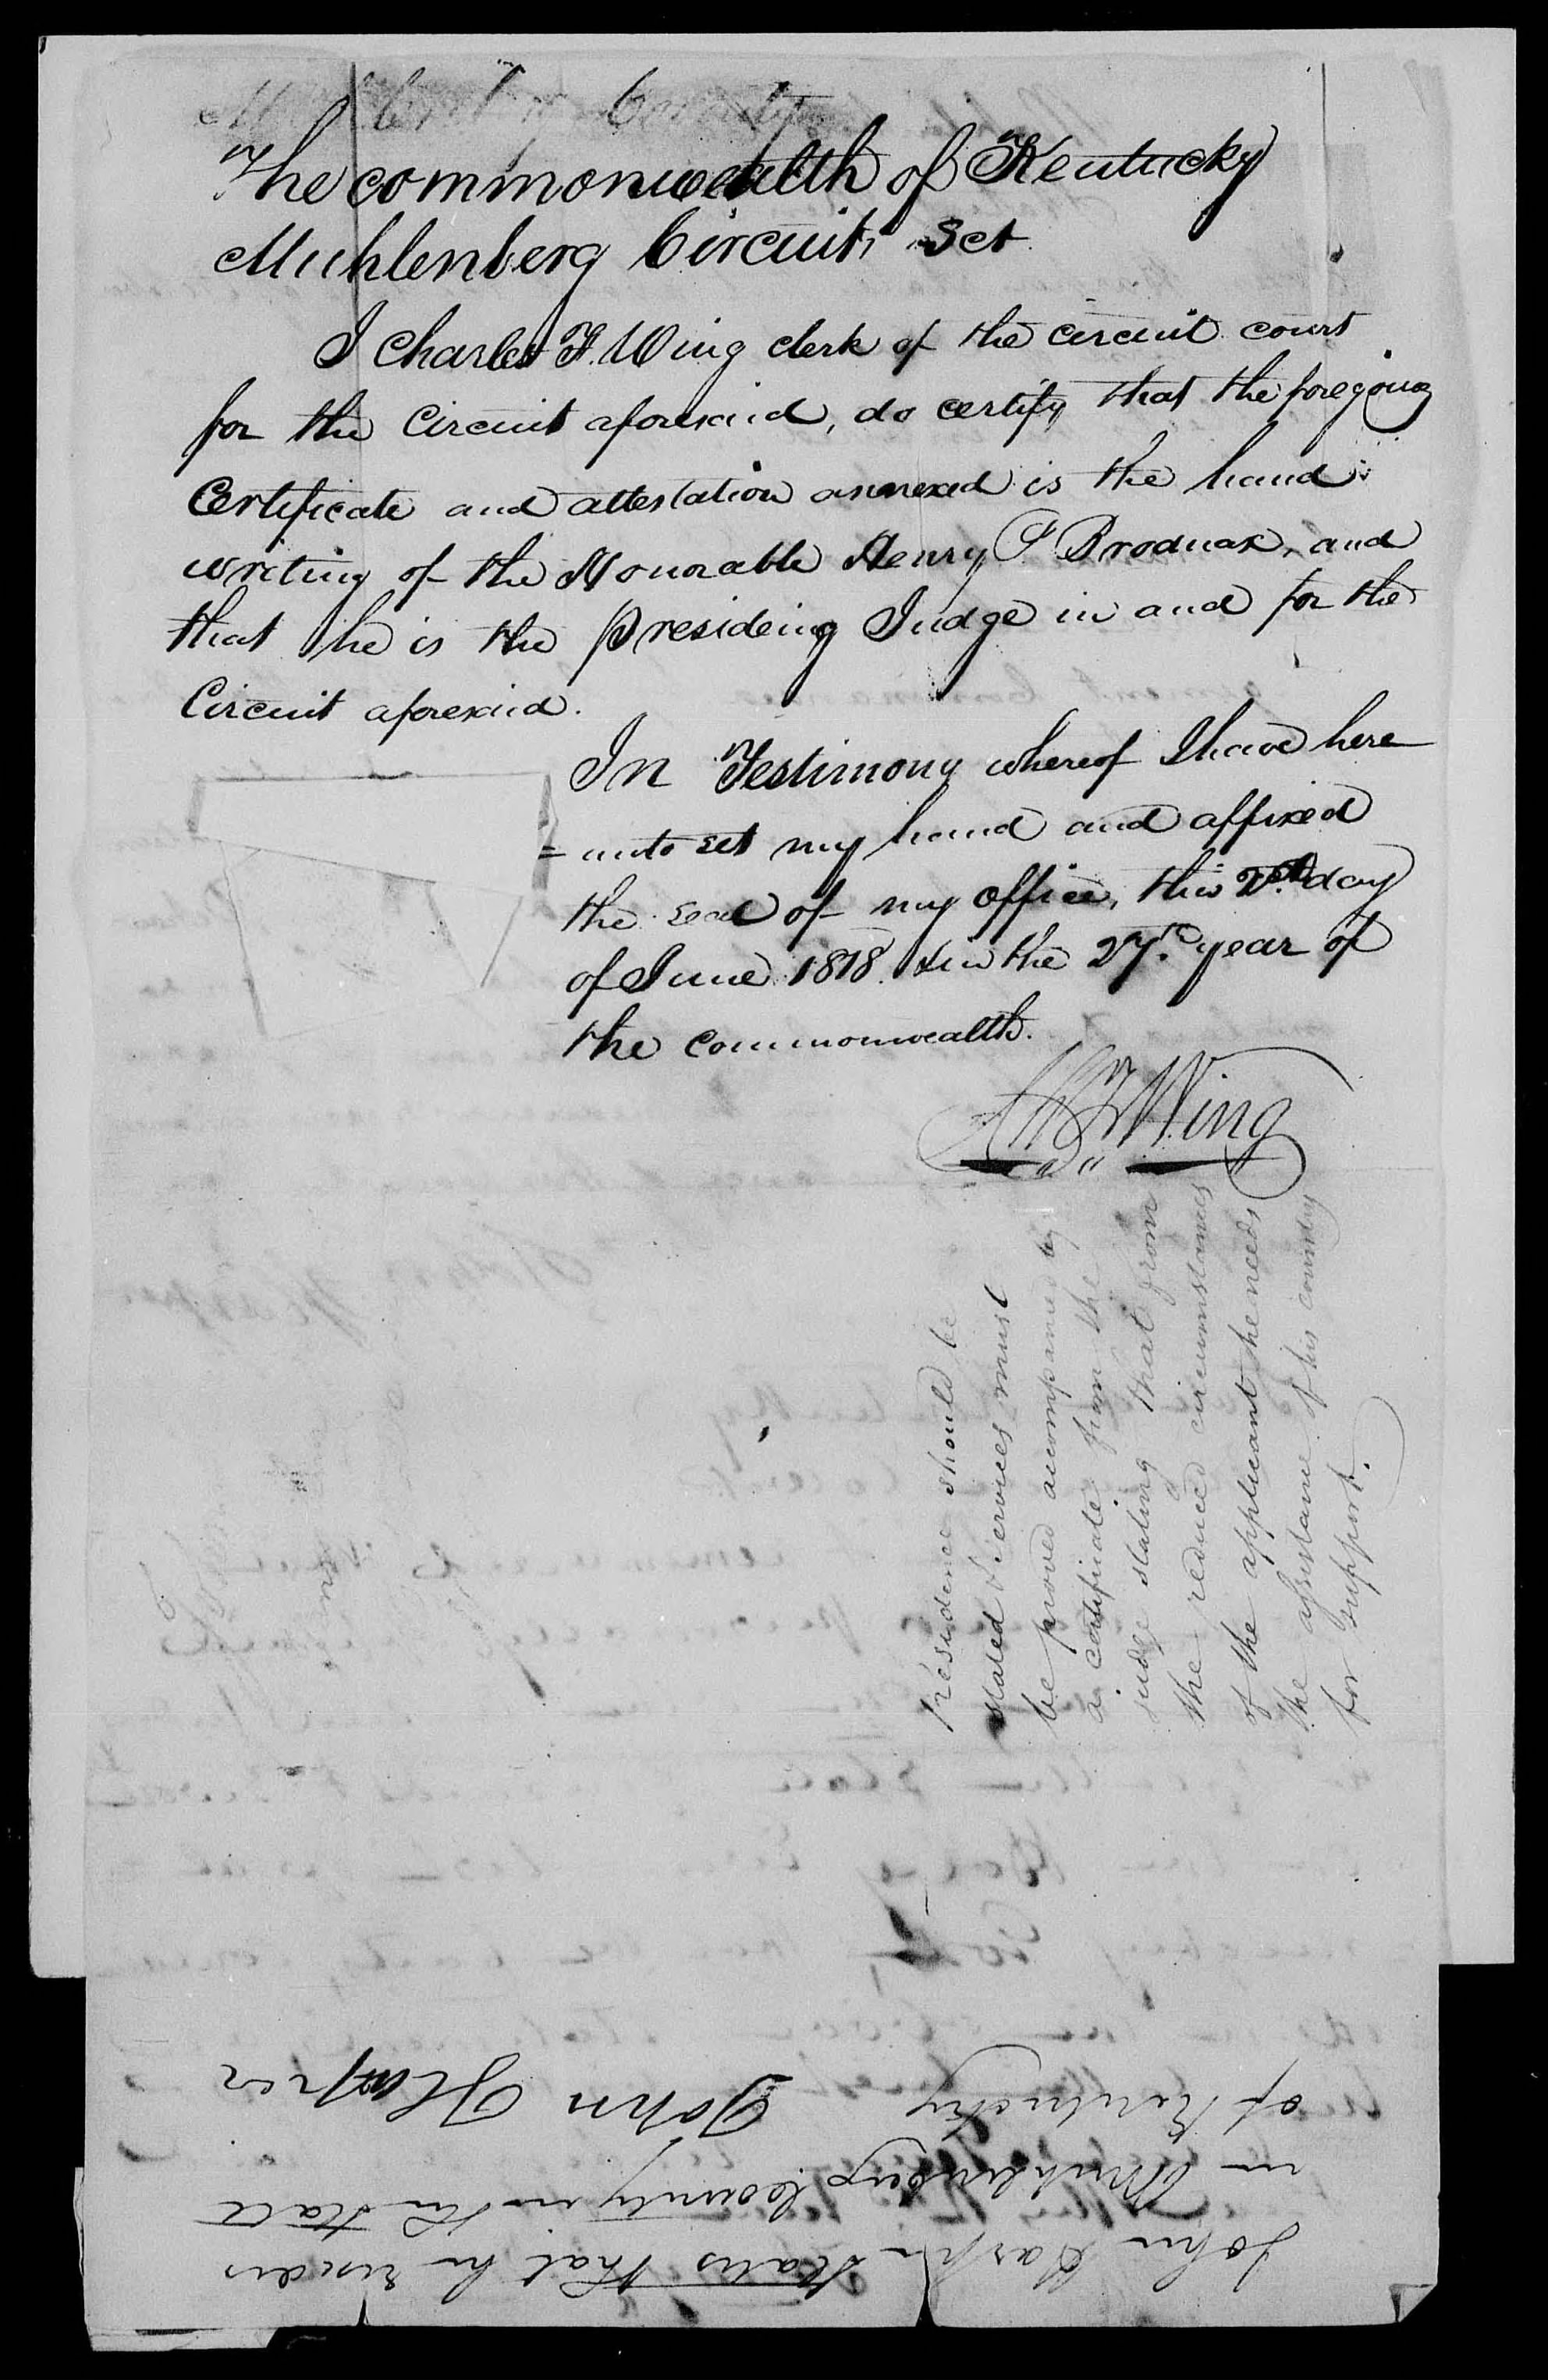 The commonwealth of Kentucky
Muhlenberg Circuit, Sct
I Charles F. Wing clerk of the circuit court
for the Circuit aforesaid, do certify that the foregoing
Certificate and attestation annexed is the hand
writing of the Honorable Henry P Brodnax, and
that he is the Presideing Judge in and for the
Circuit aforesaid.
In Testimony whereof I have here
=unto set my hand and affixed
the seal of my office, this day
of June 1818. & in the 27th. year of
the commonwealth.
Wing
Residence should be
stated & services must
be proved accompanied by
a certificate from the
judge stating that from
the reduced circumstances
of the applicant he needs
the assistance of his country
for support.
John Harper states that he resides
in Muhlenberg County in the state
of Kentucky John Harper